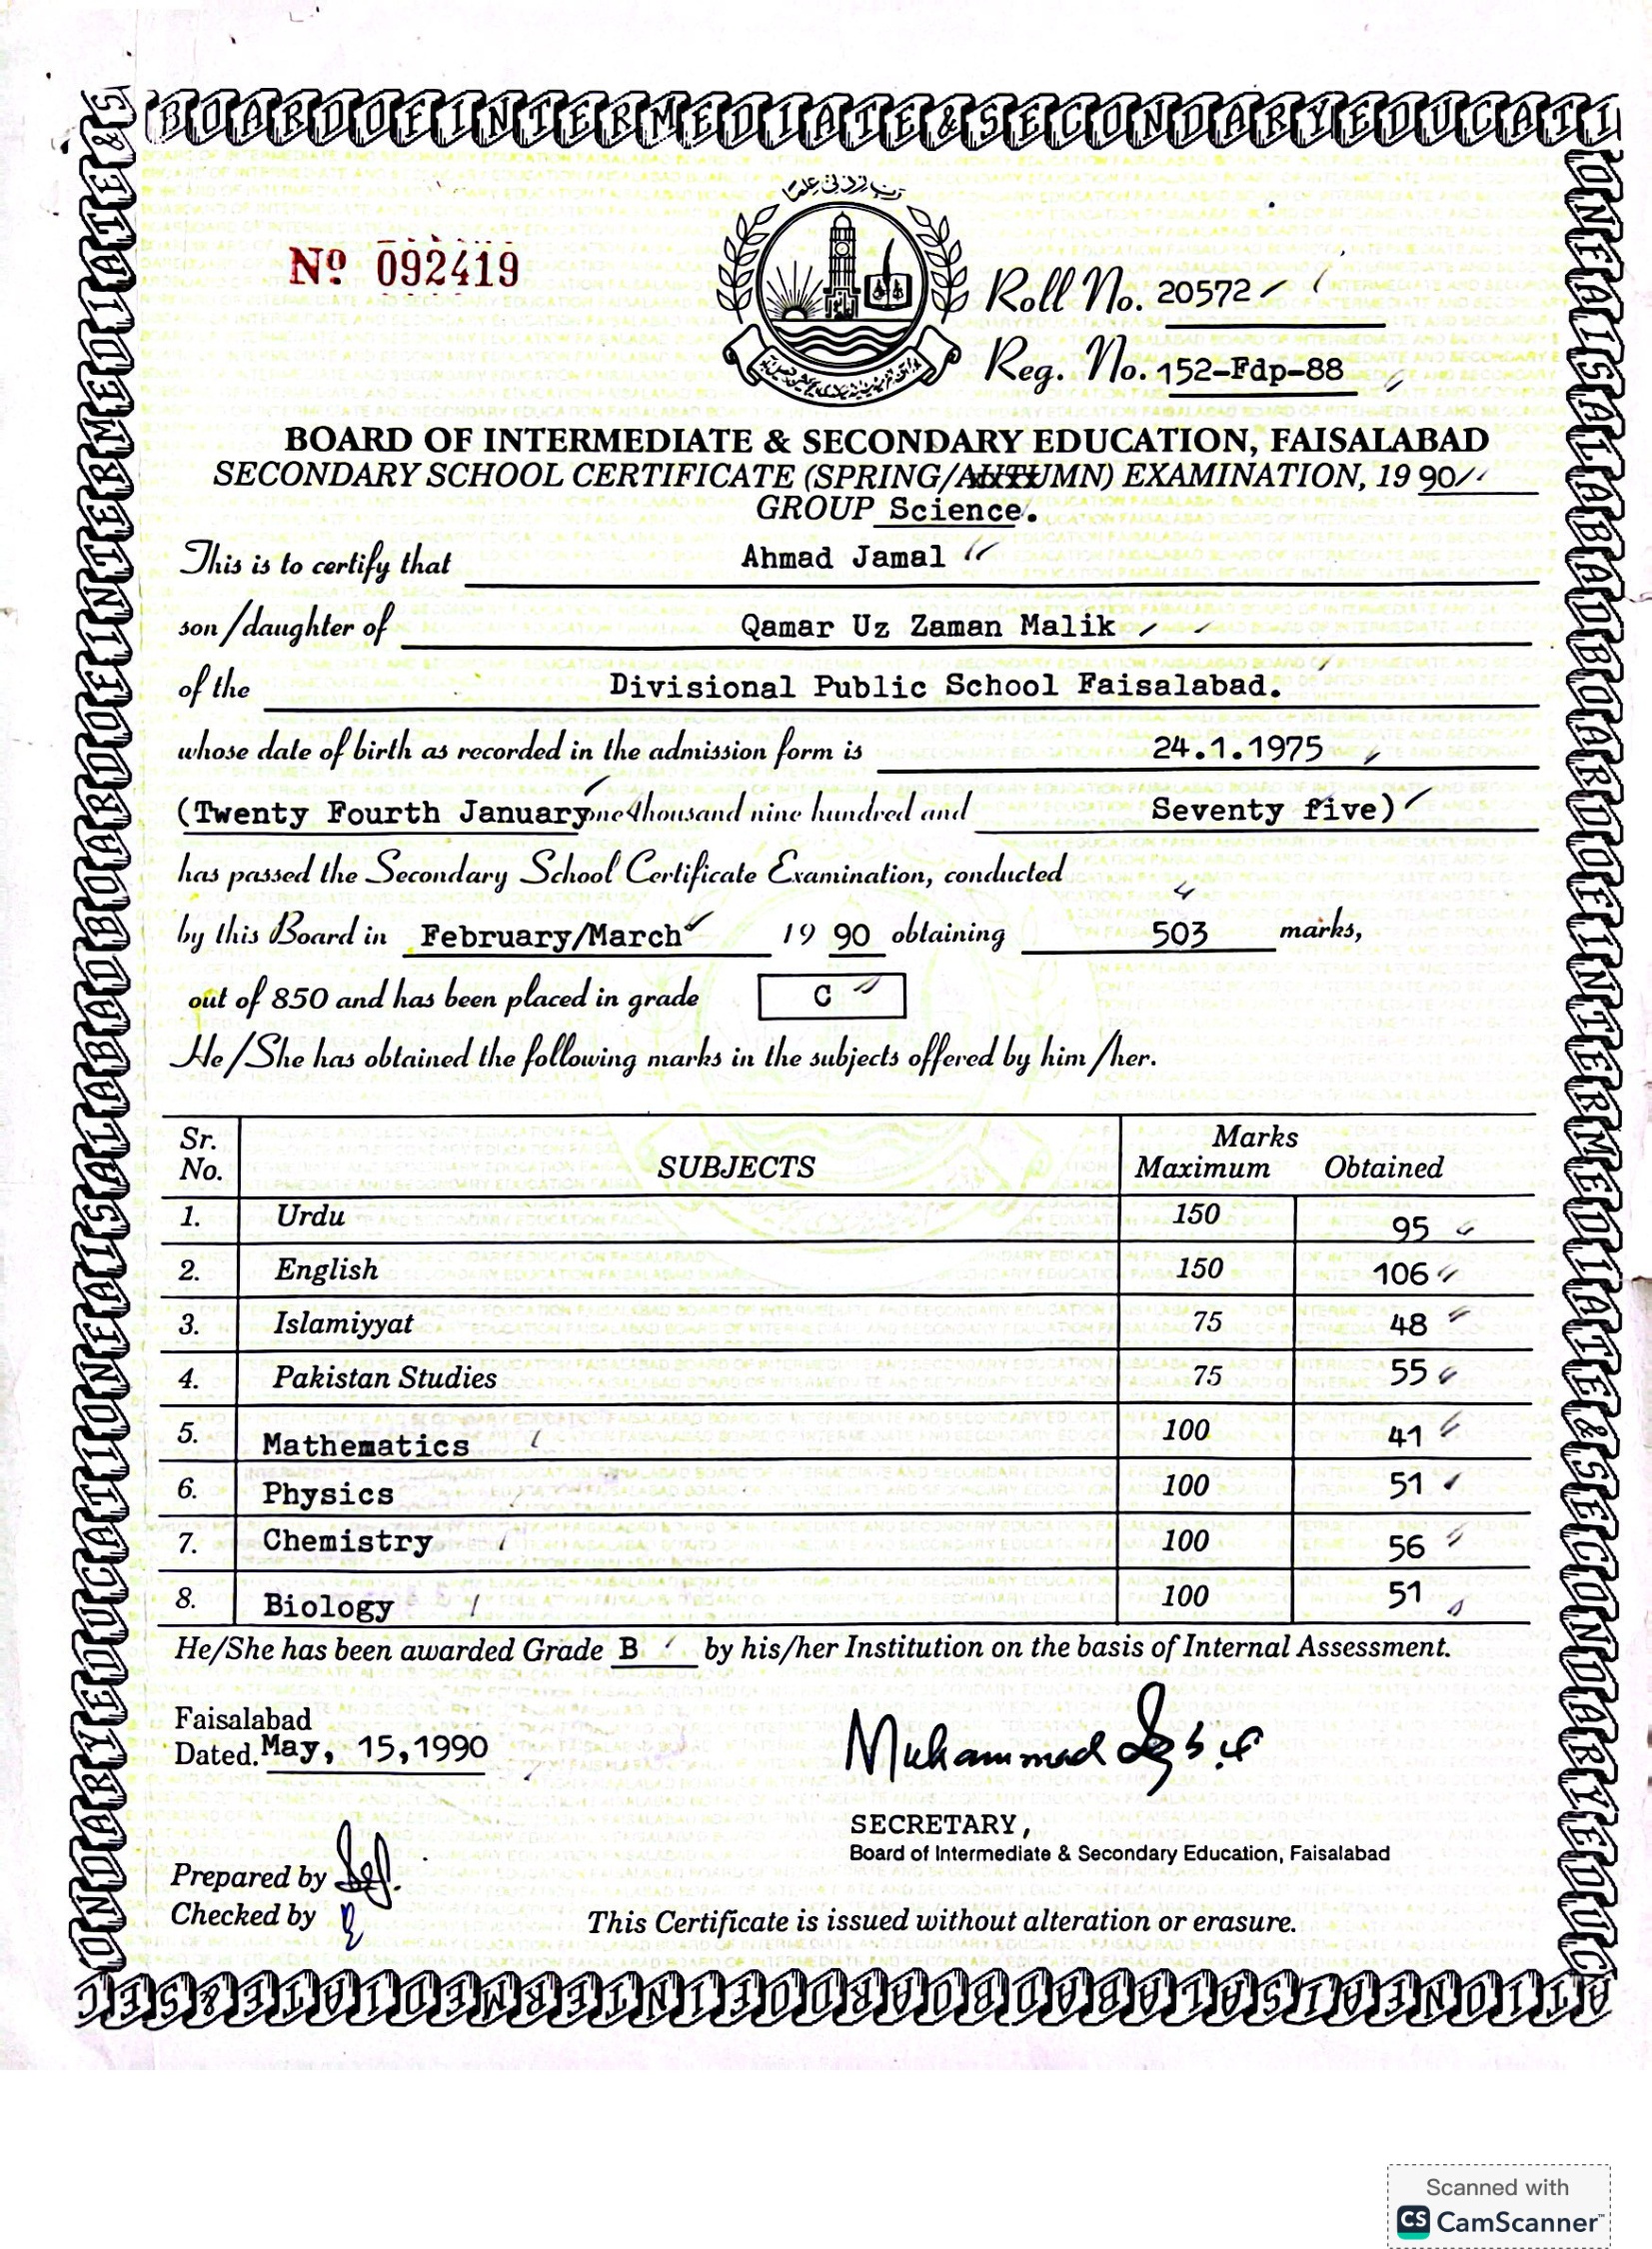 BOARD OF INTERMEDIATE & SECONDARY EDUCATION FAISALABAD
رب زدنی علما
Nº 092419
Roll No. 20572
Reg. No. 152-Fdp-88
BOARD OF INTERMEDIATE & SECONDARY EDUCATION, FAISALABAD
SECONDARY SCHOOL CERTIFICATE (SPRING/AUTUMN) EXAMINATION, 1990
GROUP Science.
This is to certify that Ahmad Jamal
son/daughter of Qamar Uz Zaman Malik
of the Divisional Public School Faisalabad.
whose date of birth as recorded in the admission form is 24.1.1975
(Twenty Fourth January one thousand nine hundred and Seventy five)
has passed the Secondary School Certificate Examination, conducted
by this Board in February/March 1990 obtaining 503 marks,
out of 850 and has been placed in grade C
He/She has obtained the following marks in the subjects offered by him/her.
Sr. No. SUBJECTS Marks Maximum Obtained
1. Urdu 150 95
2. English 150 106
3. Islamiyyat 75 48
4. Pakistan Studies 75 55
5. Mathematics 100 41
6. Physics 100 51
7. Chemistry 100 56
8. Biology 100 51
He/She has been awarded Grade B by his/her Institution on the basis of Internal Assessment.
Faisalabad
Dated. May, 15,1990
Muhammad
SECRETARY,
Board of Intermediate & Secondary Education, Faisalabad
Prepared by
Checked by
This Certificate is issued without alteration or erasure.
Scanned with
CS CamScanner